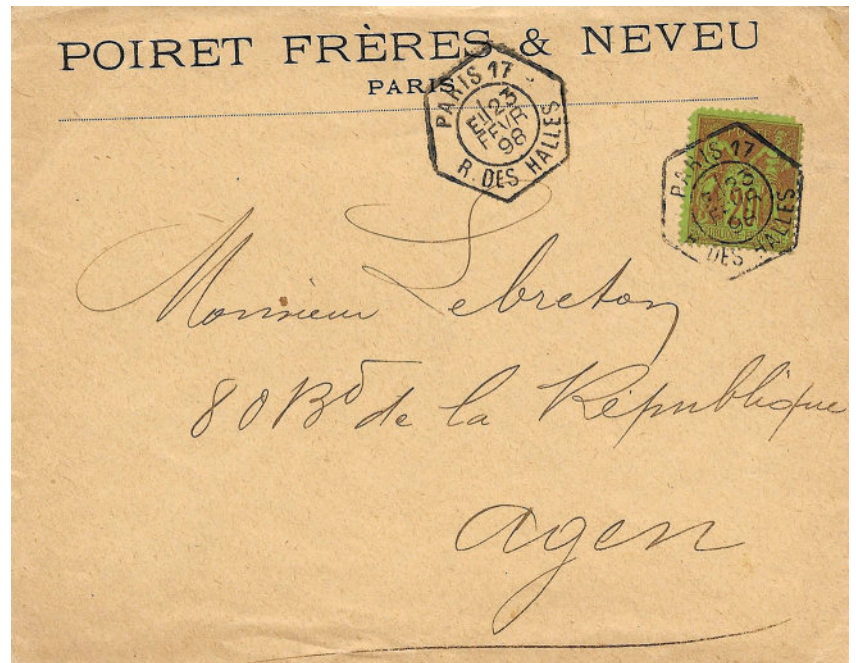 POIRET FRÈRES & NEVEU
PARIS
PARIS 17
E1/23
FEVR
98
R. DES HALLES
PARIS 17
23
98
R. DES HALLES
20
Monsieur Lebreton
80 Bd de la République
Agen